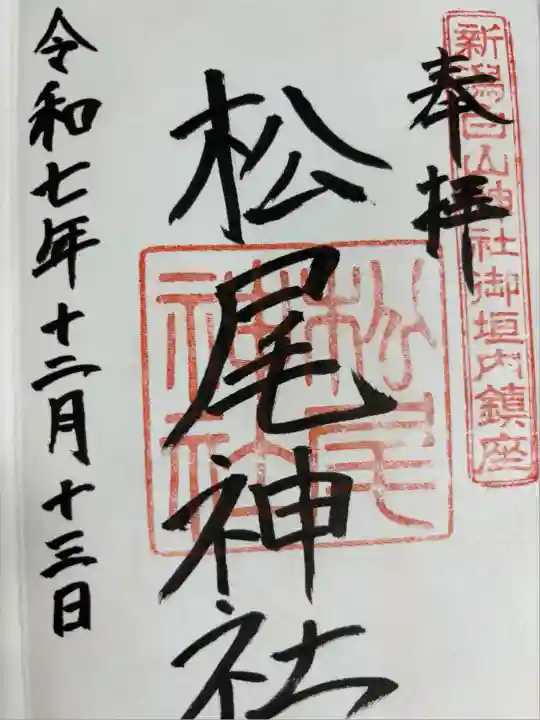 新潟白山神社御垣内鎮座
奉拝
松尾神社
松尾神社
令和七年十二月十三日